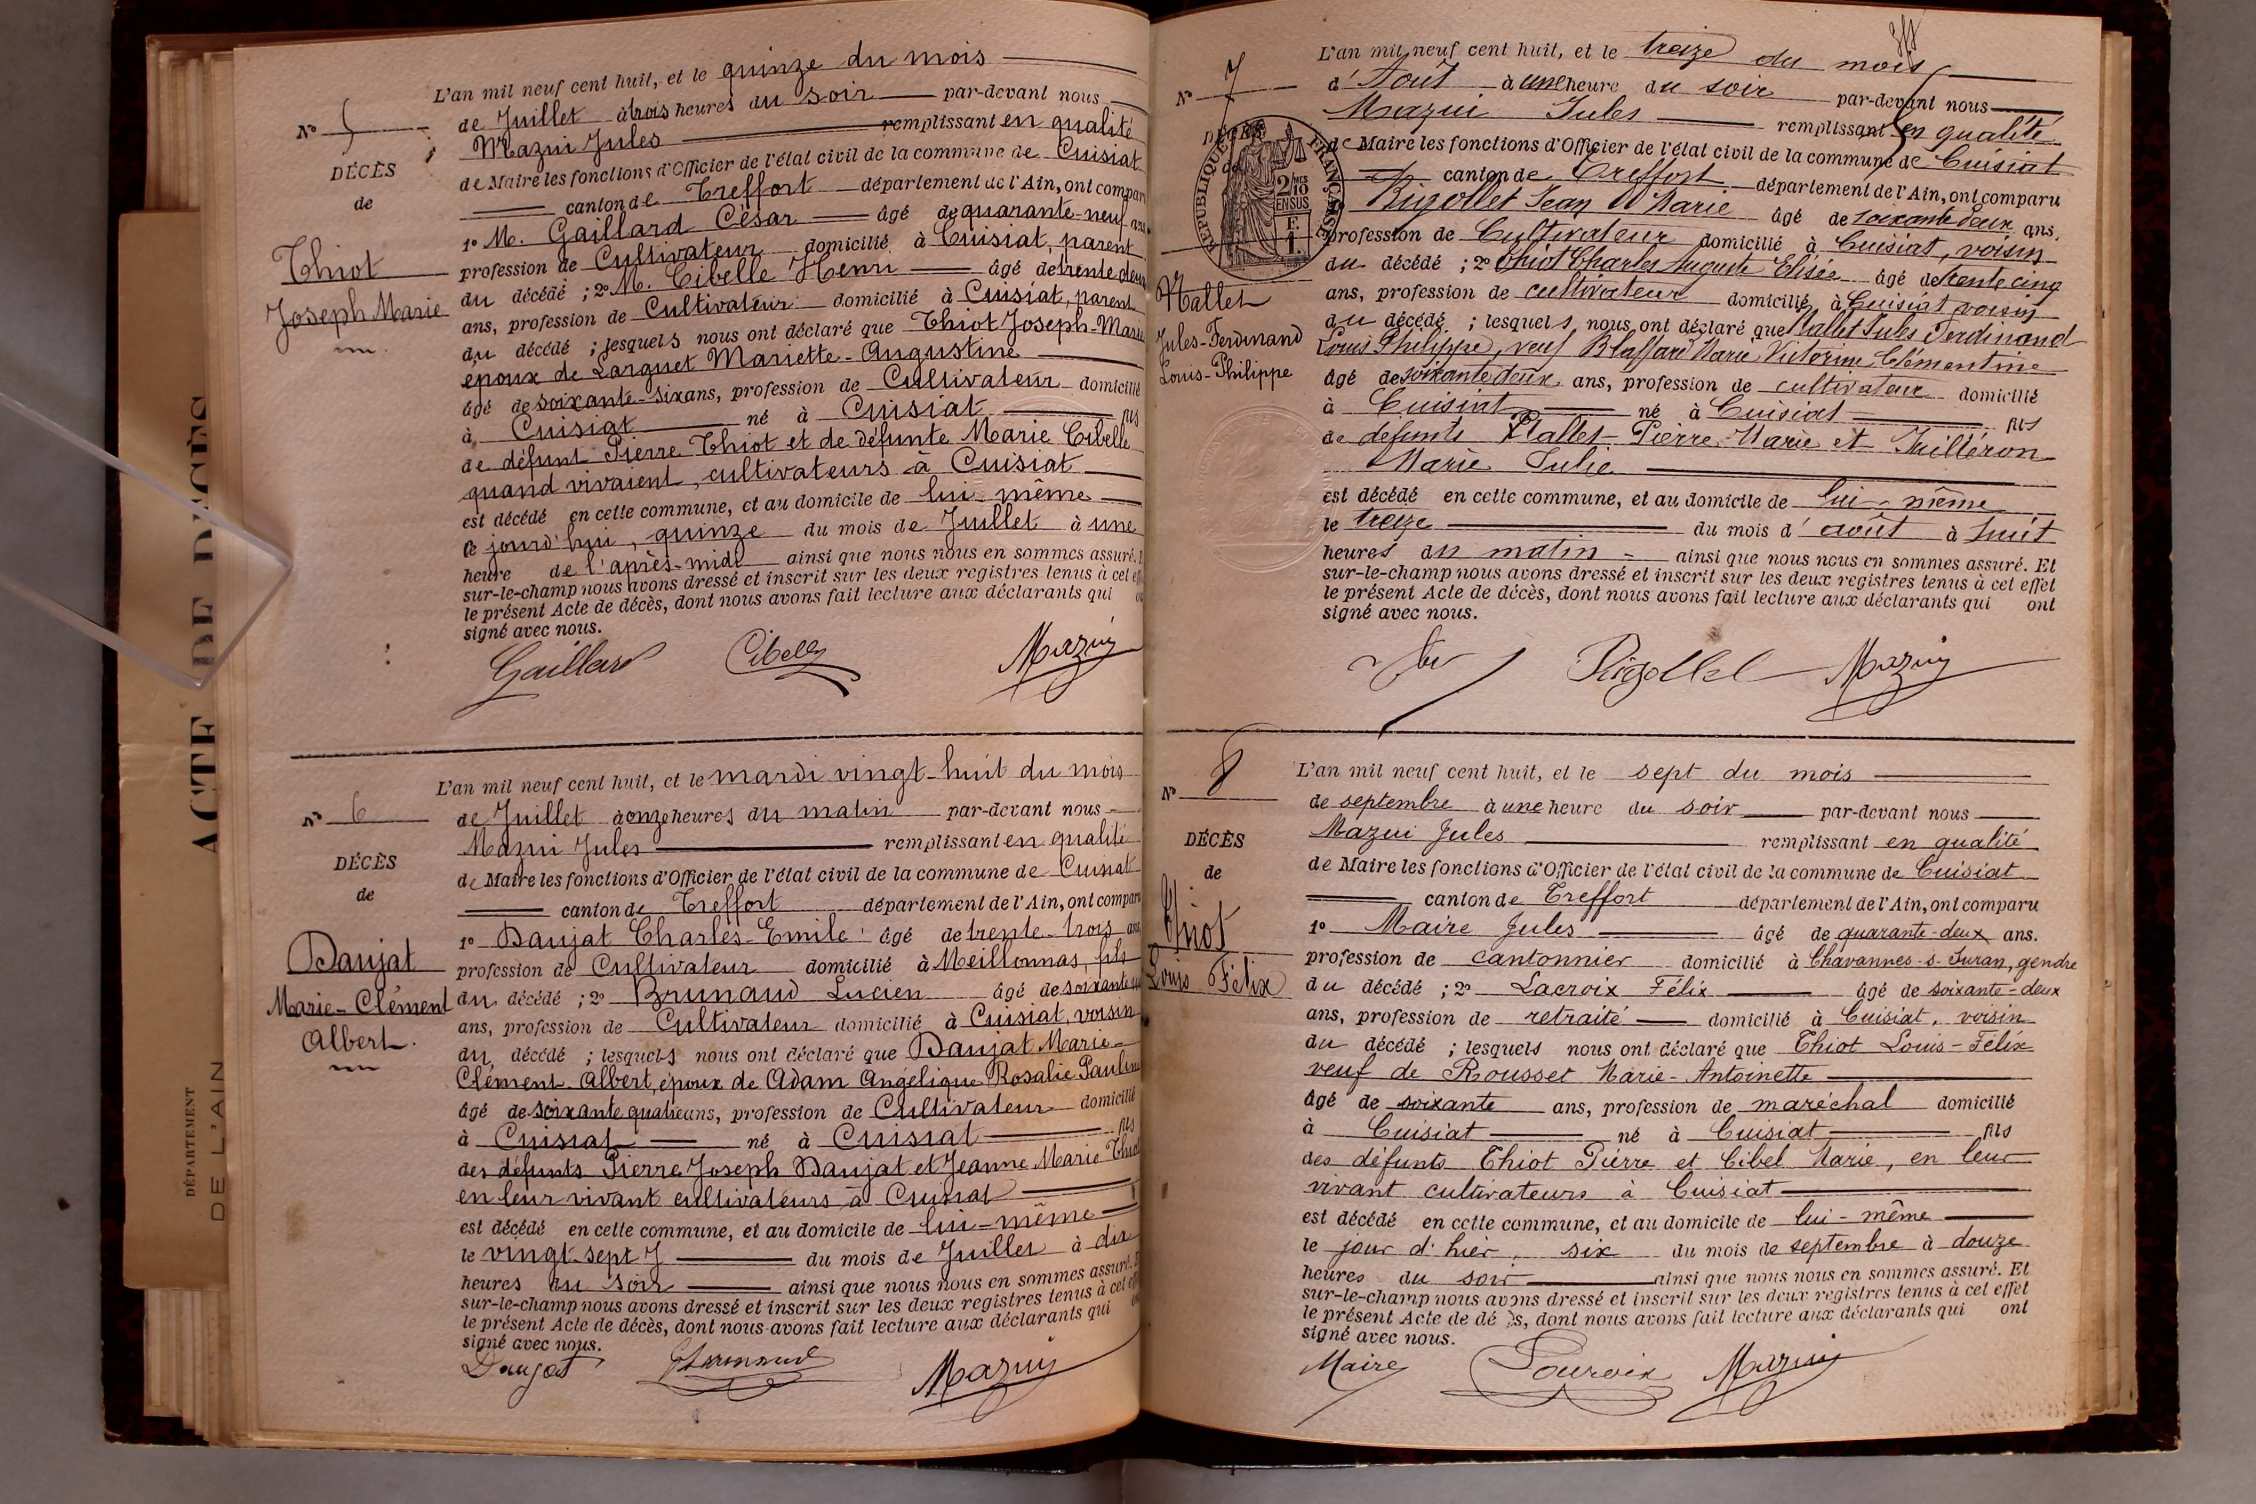 L'an mil neuf cent huit, et le quinze du mois
de Juillet à trois heures du soir par-devant nous
Mazui Jules remplissant en qualité
de Maire les fonctions d'Officier de l'état civil de la commune de Cuisiat
canton de Treffort département de l'Ain, ont comparu
1º M. Gaillard César âgé de quarante-neuf ans
profession de Cultivateur domicilié à Cuisiat, parent
du décédé ; 2º M. Cibelle Henri âgé de trente deux
ans, profession de Cultivateur domicilié à Cuisiat, parent
du décédé ; lesquels nous ont déclaré que Thiot Joseph-Marie
époux de Larguet Mariette-Augustine
âgé de soixante-six ans, profession de Cultivateur domicilié
à Cuisiat né à Cuisiat fils
de défunt Pierre Thiot et de défunte Marie Cibelle
quand vivaient, cultivateurs à Cuisiat
est décédé en cette commune, et au domicile de lui-même
ce jourd'hui, quinze du mois de Juillet à une
heure de l'après-midi ainsi que nous nous en sommes assuré.
sur-le-champ nous avons dressé et inscrit sur les deux registres tenus à cet
le présent Acte de décès, dont nous avons fait lecture aux déclarants qui
signé avec nous.
Gaillard Cibelle Mazuy
Nº 5
DÉCÈS
de
Thiot
Joseph Marie
L'an mil neuf cent huit, et le mardi vingt-huit du mois
de Juillet à onze heures du matin par-devant nous
Mazui Jules remplissant en qualité
de Maire les fonctions d'Officier de l'état civil de la commune de Cuisiat
canton de Treffort département de l'Ain, ont comparu
1º Daujat Charles-Emile âgé de trente-trois ans
profession de Cultivateur domicilié à Meillonnas, fils
du décédé ; 2º Brunaud Lucien âgé de soixante
ans, profession de Cultivateur domicilié à Cuisiat, voisin
du décédé ; lesquels nous ont déclaré que Daujat Marie-
Clément-Albert, époux de Adam Angélique Rosalie Pauline
âgé de soixante quatre ans, profession de Cultivateur domicilié
à Cuisiat né à Cuisiat fils
des défunts Pierre Joseph Daujat et Jeanne Marie Thiot
en leur vivant cultivateurs à Cuisiat
est décédé en cette commune, et au domicile de lui-même
le vingt-sept du mois de Juillet à dix
heures du soir ainsi que nous nous en sommes assuré.
sur-le-champ nous avons dressé et inscrit sur les deux registres tenus à cet
le présent Acte de décès, dont nous avons fait lecture aux déclarants qui
signé avec nous.
Daujat Mazuy
Nº 6
DÉCÈS
de
Daujat
Marie-Clément
Albert.
L'an mil neuf cent huit, et le treize du mois
d'Août à une heure du soir par-devant nous
Mazui Jules remplissant en qualité
de Maire les fonctions d'Officier de l'état civil de la commune de Cuisiat
canton de Treffort département de l'Ain, ont comparu
Rigollet Jean Marie âgé de soixante deux ans.
profession de Cultivateur domicilié à Cuisiat, voisin
du décédé ; 2º Thiot Charles Auguste Elisée âgé de trente cinq
ans, profession de cultivateur domicilié à Cuisiat voisin
du décédé ; lesquels nous ont déclaré que Mallet Jules Ferdinand
Louis Philippe, veuf Marie Victorine Clémentine
âgé de soixante deux ans, profession de cultivateur domicilié
à Cuisiat né à Cuisiat fils
de défunts Mallet Pierre-Marie et
Marie Julie
est décédé en cette commune, et au domicile de lui-même
le treize du mois d'août à huit
heures du matin ainsi que nous nous en sommes assuré. Et
sur-le-champ nous avons dressé et inscrit sur les deux registres tenus à cet effet
le présent Acte de décès, dont nous avons fait lecture aux déclarants qui ont
signé avec nous.
Rigollet Mazuy
Nº 7
DÉCÈS
RÉPUBLIQUE FRANÇAISE
2/10
EN SUS
Mallet
Jules-Ferdinand
Louis-Philippe
L'an mil neuf cent huit, et le sept du mois
de septembre à une heure du soir par-devant nous
Mazui Jules remplissant en qualité
de Maire les fonctions d'Officier de l'état civil de la commune de Cuisiat
canton de Treffort département de l'Ain, ont comparu
1º Maire Jules âgé de quarante-deux ans.
profession de cantonnier domicilié à Chavannes-s-Suran, gendre
du décédé ; 2º Lacroix Félix âgé de soixante-deux
ans, profession de retraité domicilié à Cuisiat, voisin
du décédé ; lesquels nous ont déclaré que Thiot Louis-Félix
veuf de Rousset Marie-Antoinette
âgé de soixante ans, profession de maréchal domicilié
à Cuisiat né à Cuisiat fils
des défunts Thiot Pierre et Cibel Marie, en leur
vivant cultivateurs à Cuisiat
est décédé en cette commune, et au domicile de lui-même
le jour d'hier, six du mois de septembre à douze
heures du soir ainsi que nous nous en sommes assuré. Et
sur-le-champ nous avons dressé et inscrit sur les deux registres tenus à cet effet
le présent Acte de décès, dont nous avons fait lecture aux déclarants qui ont
signé avec nous.
Maire Mazuy
Nº 8
DÉCÈS
de
Thiot
Louis Félix
ACTE DE DÉCÈS
DÉPARTEMENT
DE L'AIN